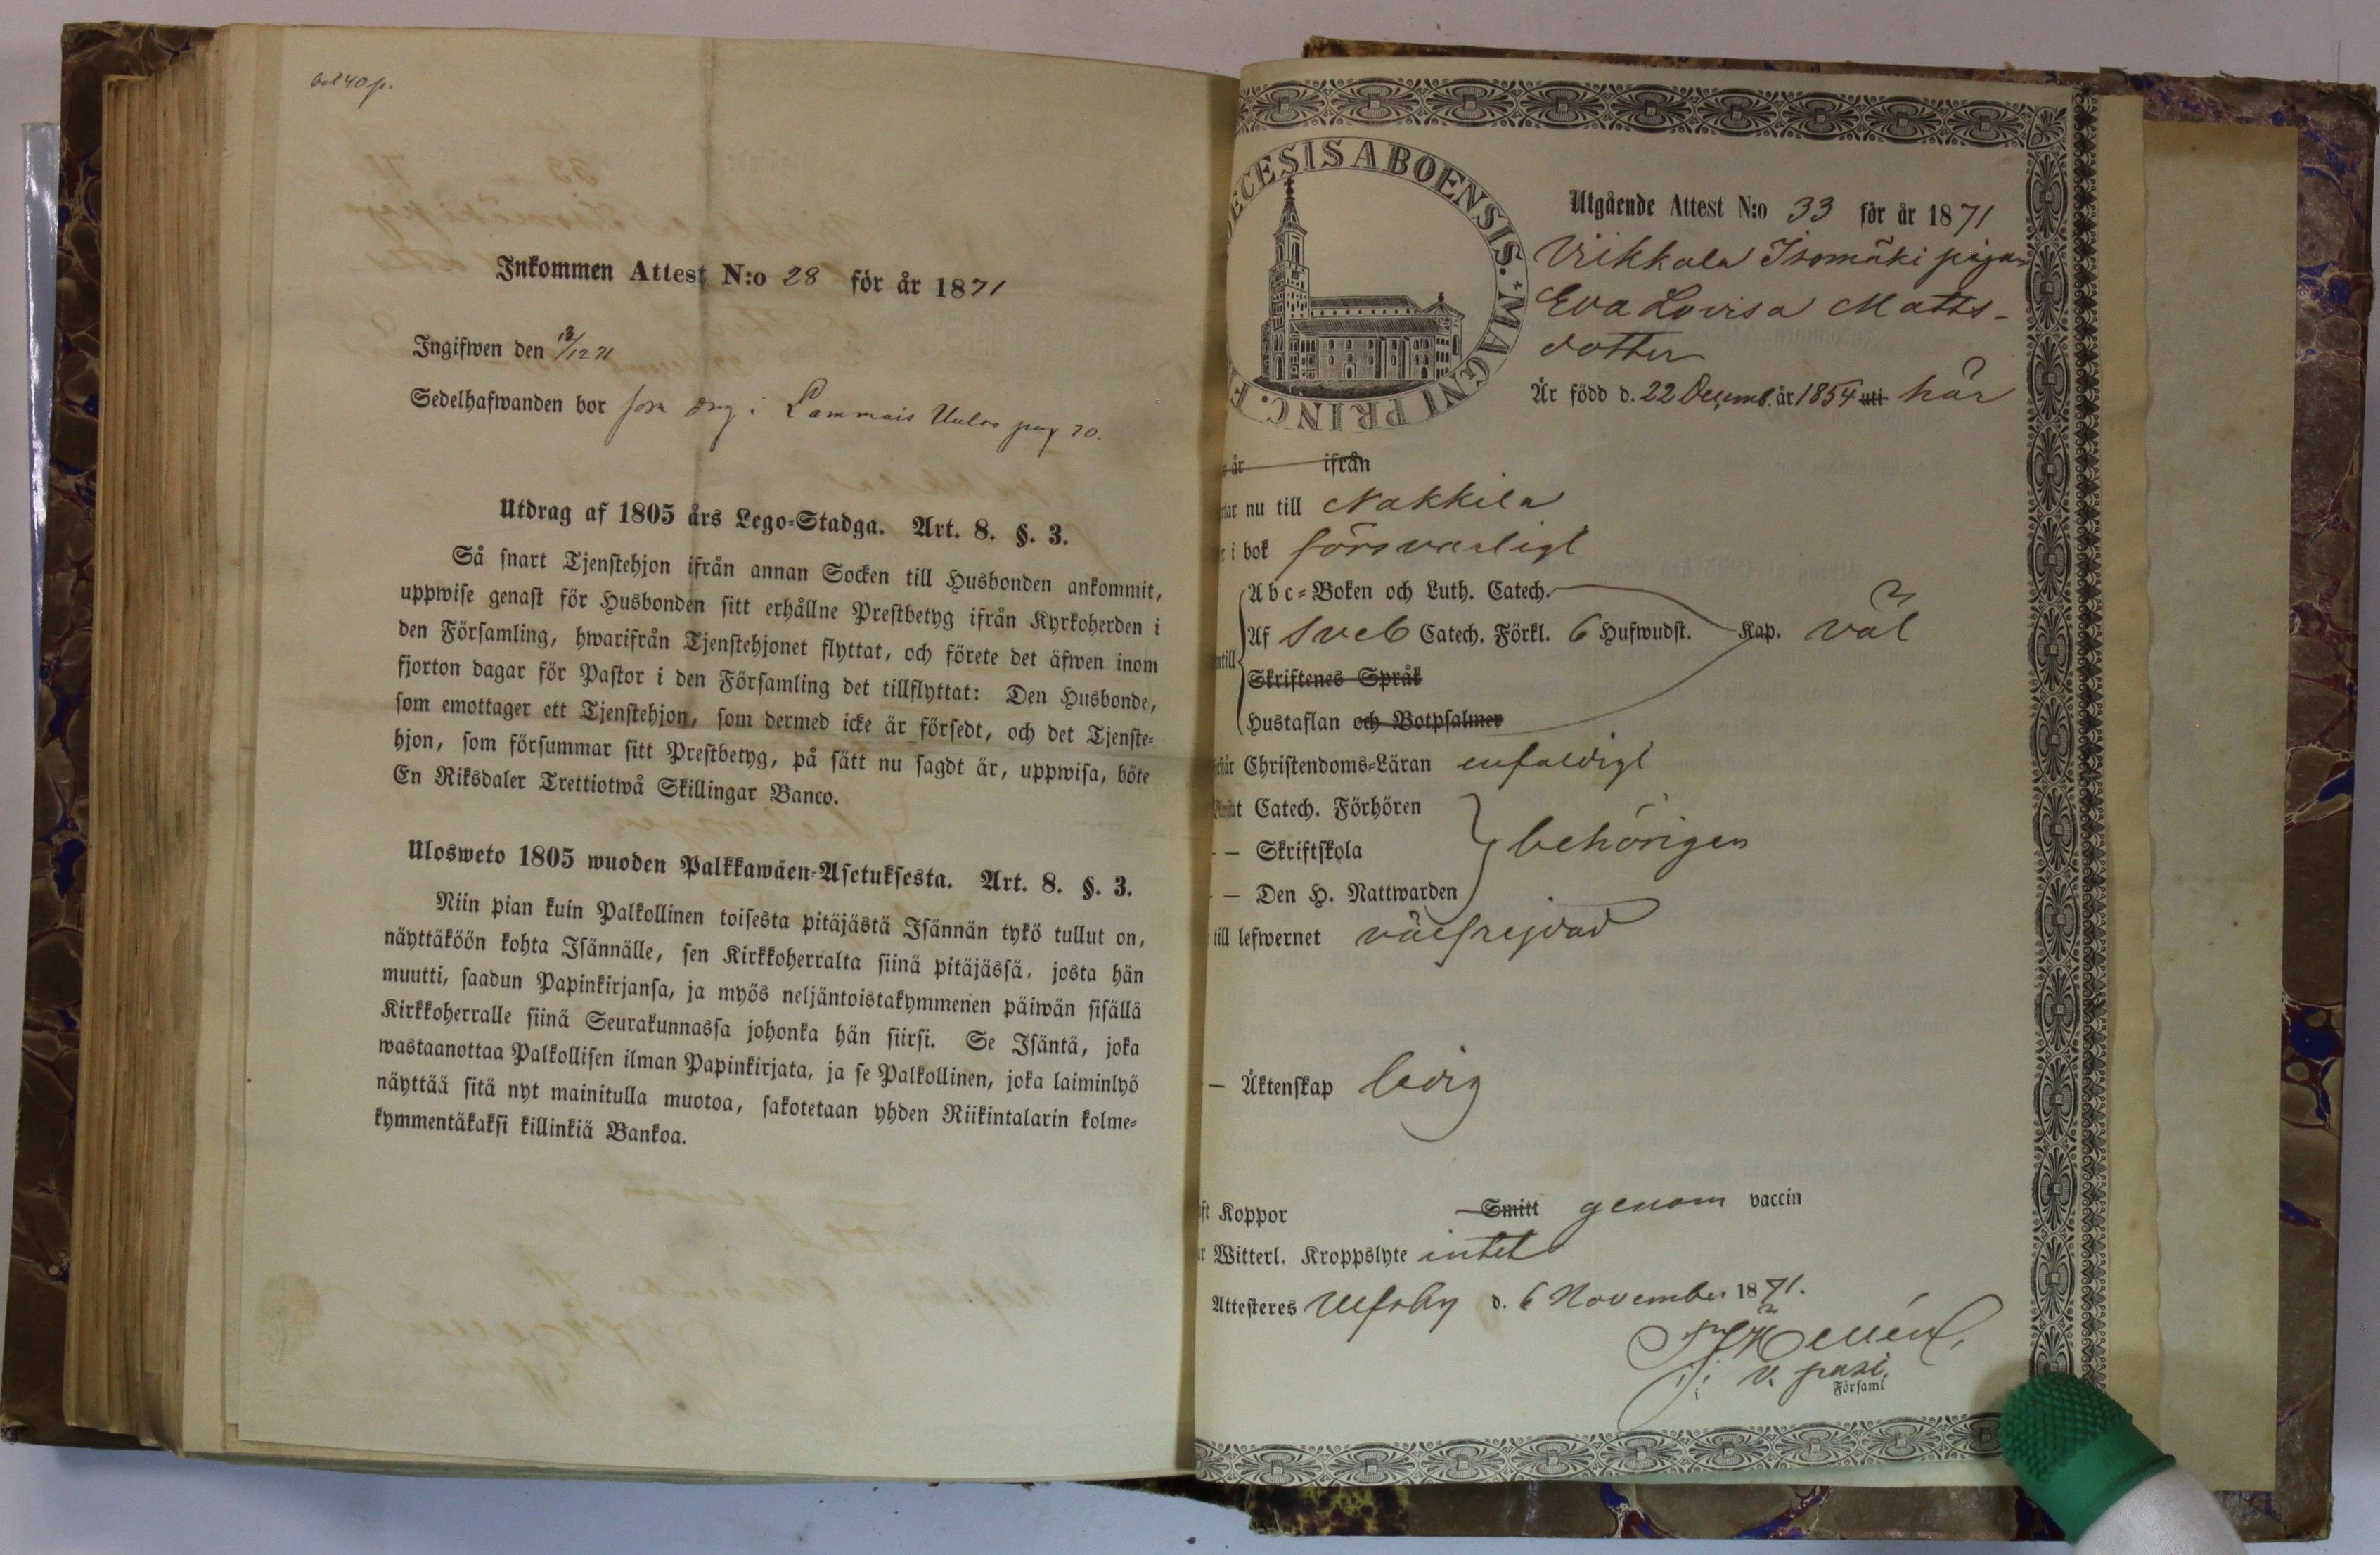 Inkommen Attest N:o 28 för år 1871
Ingifwen den /12 71
Sedelhafwanden bor som i Lammais pag 20.
Utdrag af 1805 års Lego-Stadga. Art. 8. §. 3.
Så snart Tjenstehjon ifrån annan Socken till Husbonden ankommit,
uppwise genast för Husbonden sitt erhållne Prestbetyg ifrån Kyrkoherden i
den Församling, hwarifrån Tjenstehjonet flyttat, och förete det äfwen inom
fjorton dagar för Pastor i den Församling det tillflyttat: Den Husbonde,
som emottager ett Tjenstehjon, som dermed icke är försedt, och det Tjenste-
hjon, som försummar sitt Prestbetyg, på sätt nu sagdt är, uppwisa, böte
En Riksdaler Trettiotwå Skillingar Banco.
Ulosweto 1805 wuoden Palkkawäen-Asetuksesta. Art. 8. §. 3.
Niin pian kuin Palkollinen toisesta pitäjästä Isännän tykö tullut on,
näyttäköön kohta Isännälle, sen Kirkkoherralta siinä pitäjässä, josta hän
muutti, saadun Papinkirjansa, ja myös neljäntoistakymmenen päiwän sisällä
Kirkkoherralle siinä Seurakunnassa johonka hän siirsi. Se Isäntä, joka
wastaanottaa Palkollisen ilman Papinkirjata, ja se Palkollinen, joka laiminlyö
näyttää sitä nyt mainitulla muotoa, sakotetaan yhden Riikintalarin kolme-
kymmentäkaksi killinkiä Bankoa.
ECESIS ABOENSIS. * MAGNI PRINC. F
Utgående Attest N:o 33 för år 1871
Viikkala Isomäki pigan
Eva Lovisa Matts-
dotter
Är född d. 22 Decemb. år 1854 uti här
år ifrån
nu till Nakkila
i bok försvarligt
Abc-Boken och Luth. Catech.
Af Sveb Catech. Förkl. 6 Hufwudst. Kap. väl
Skriftenes Språk
Hustaflan och Botpsalmer
Christendoms-Läran enfaldigt
Catech. Förhören
— Skriftskola behörigen
— Den H. Nattwarden
till lefwernet välfrejdad
— Äktenskap ledig
Koppor Smitt genom vaccin
Witterl. Kroppslyte intet
Attesteres Ulfsby d. 6 November 1871.
v. past.
i Församl